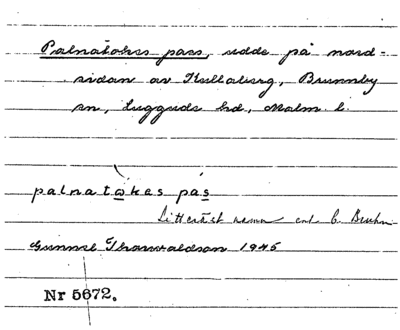 Palnatokes pass, udde på nord-
sidan av Kullaberg, Brunnby
sn, Luggude hd, Malm. l.
palnatɷkas pás
Litterärt namn enl C. Bruhn
Gunnel Thorwaldson 1945
Nr 5672.